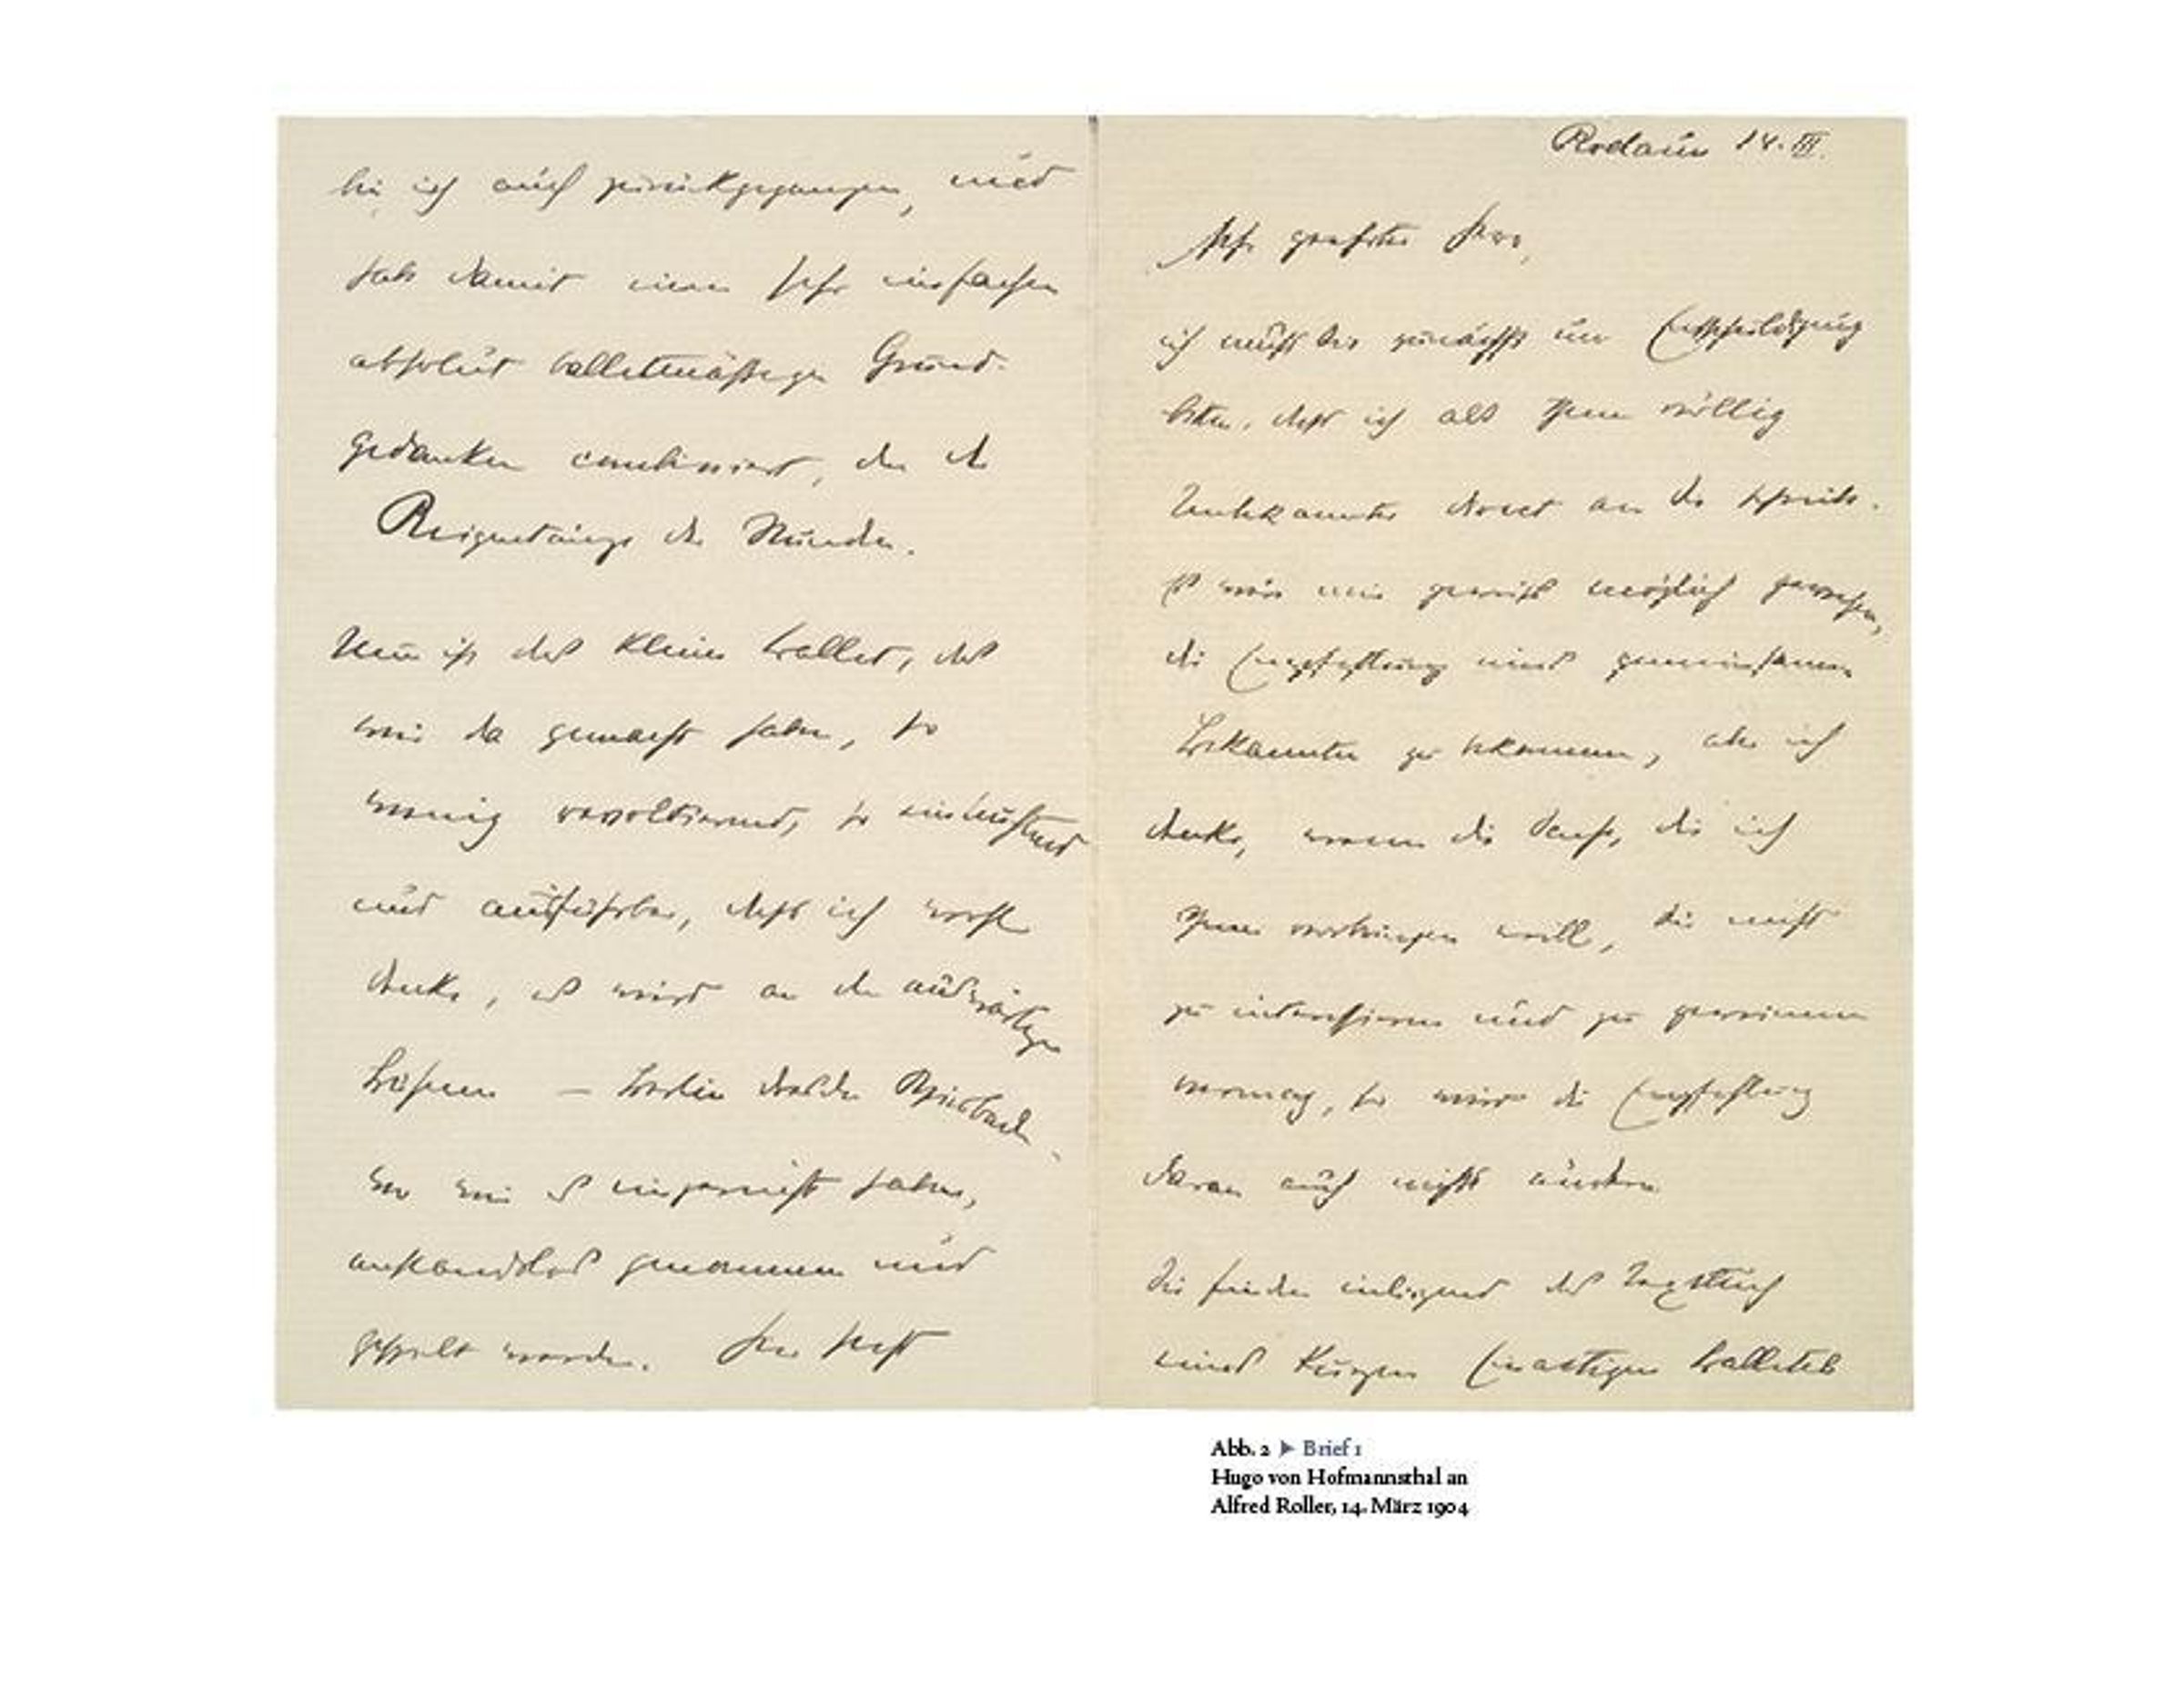 bin ich auch zurückgegangen, und
habe damit einen sehr einfachen
absolut balletmässigen Grund-
gedanken combiniert, den der
Reigentänze der Stunden.
Nun ist das kleine Ballet, das
wir da gemacht haben, so
wenig revoltierend, so einleuchtend
und ausführbar, dass ich wohl
denke, es wird an den auswärtigen
Bühnen – Berlin Dresden Wiesbaden
wo wir es eingereicht haben,
anstandslos genommen und
gespielt werden.
Rodaun 14. III.
Sehr geehrter Herr,
ich muss Sie zunächst um Entschuldigung
bitten, dass ich als Ihnen völlig
Unbekannter direct an Sie schreibe.
Es wäre mir gewiss möglich gewesen,
die Empfehlung eines gemeinsamen
Bekannten zu bekommen, aber ich
denke, wenn die Sache, die ich
Ihnen vorbringen will, Sie nicht
zu interessieren und zu gewinnen
vermag, so wird die Empfehlung
daran auch nichts ändern.
Sie finden inliegend das Textbuch
eines kurzen Einactigen Ballettes
Abb. 2 ▶ Brief 1
Hugo von Hofmannsthal an
Alfred Roller, 14. März 1904